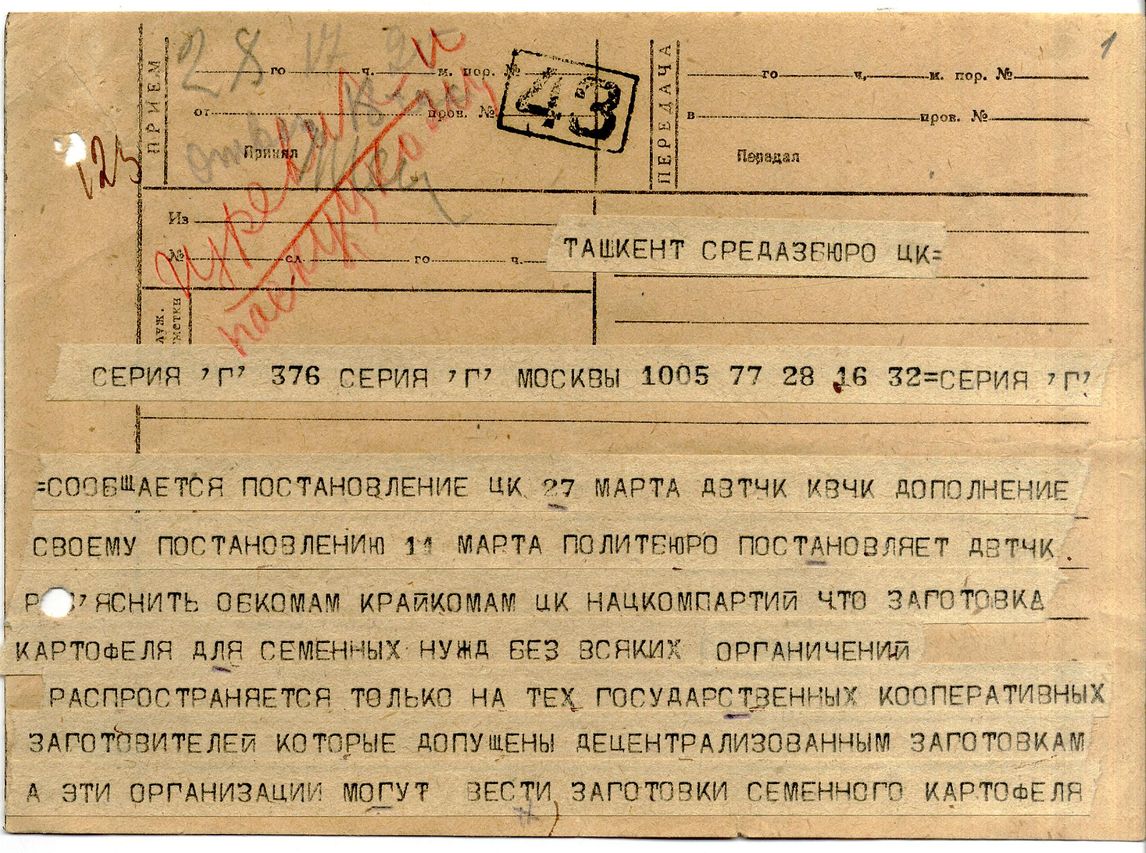 1
ПРИЕМ
28
го ч. м. пор. №
от пров. №
Принял
43
ПЕРЕДАЧА
го ч. м. пор. №
в пров. №
Передал
123
Из
№ сл. го ч.
ТАШКЕНТ СРЕДАЗБЮРО ЦК=
СЕРИЯ 'Г' 376 СЕРИЯ 'Г' МОСКВЫ 1005 77 28 16 32=СЕРИЯ 'Г'
=СООБЩАЕТСЯ ПОСТАНОВЛЕНИЕ ЦК 27 МАРТА ДВТЧК КВЧК ДОПОЛНЕНИЕ
СВОЕМУ ПОСТАНОВЛЕНИЮ 11 МАРТА ПОЛИТБЮРО ПОСТАНОВЛЯЕТ ДВТЧК
'ЯСНИТЬ ОБКОМАМ КРАЙКОМАМ ЦК НАЦКОМПАРТИЙ ЧТО ЗАГОТОВКА
КАРТОФЕЛЯ ДЛЯ СЕМЕННЫХ НУЖД БЕЗ ВСЯКИХ ОРГАНИЧЕНИЙ
РАСПРОСТРАНЯЕТСЯ ТОЛЬКО НА ТЕХ ГОСУДАРСТВЕННЫХ КООПЕРАТИВНЫХ
ЗАГОТОВИТЕЛЕЙ КОТОРЫЕ ДОПУЩЕНЫ ДЕЦЕНТРАЛИЗОВАННЫМ ЗАГОТОВКАМ
А ЭТИ ОРГАНИЗАЦИИ МОГУТ ВЕСТИ ЗАГОТОВКИ СЕМЕННОГО КАРТОФЕЛЯ